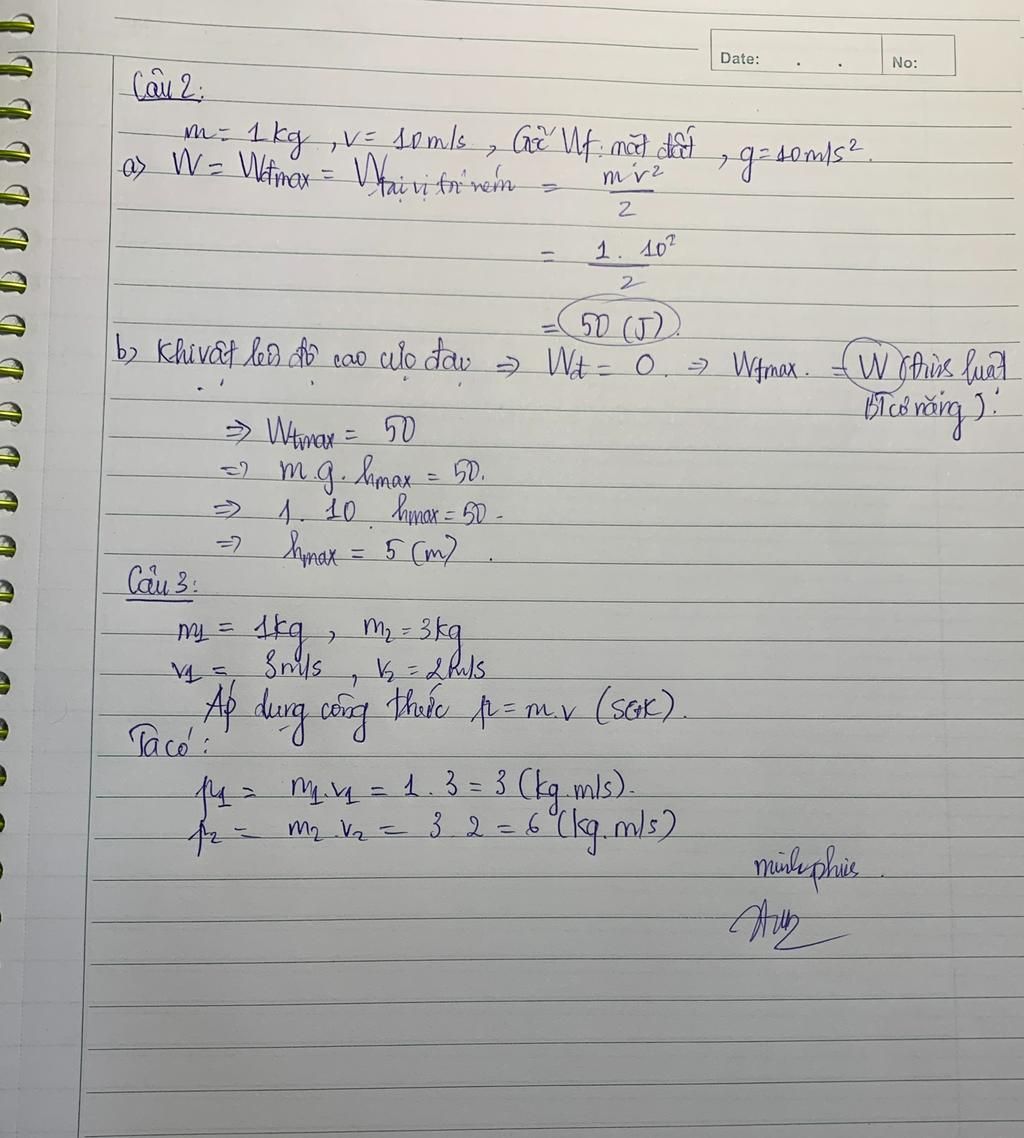 Date: . . No:
Câu 2:
m = 1kg , v = 10m/s , Gốc Wt: mặt đất , g = 10m/s².
a) W = Wđmax = Wtại vị trí ném = mv²/2
= 1. 10²/2
= 50 (J).
b) Khi vật lên độ cao cực đại => Wđ = 0. => Wtmax. = W (định luật
BT cơ năng).
=> Wtmax = 50
=> m.g. hmax = 50.
=> 1. 10. hmax = 50.
=> hmax = 5 (m).
Câu 3:
m1 = 1kg , m2 = 3kg
v1 = 3m/s , v2 = 2m/s
Áp dụng công thức p = m.v (SGK).
Ta có:
p1 = m1.v1 = 1. 3 = 3 (kg.m/s).
p2 = m2.v2 = 3. 2 = 6 (kg.m/s)
minhphúc.